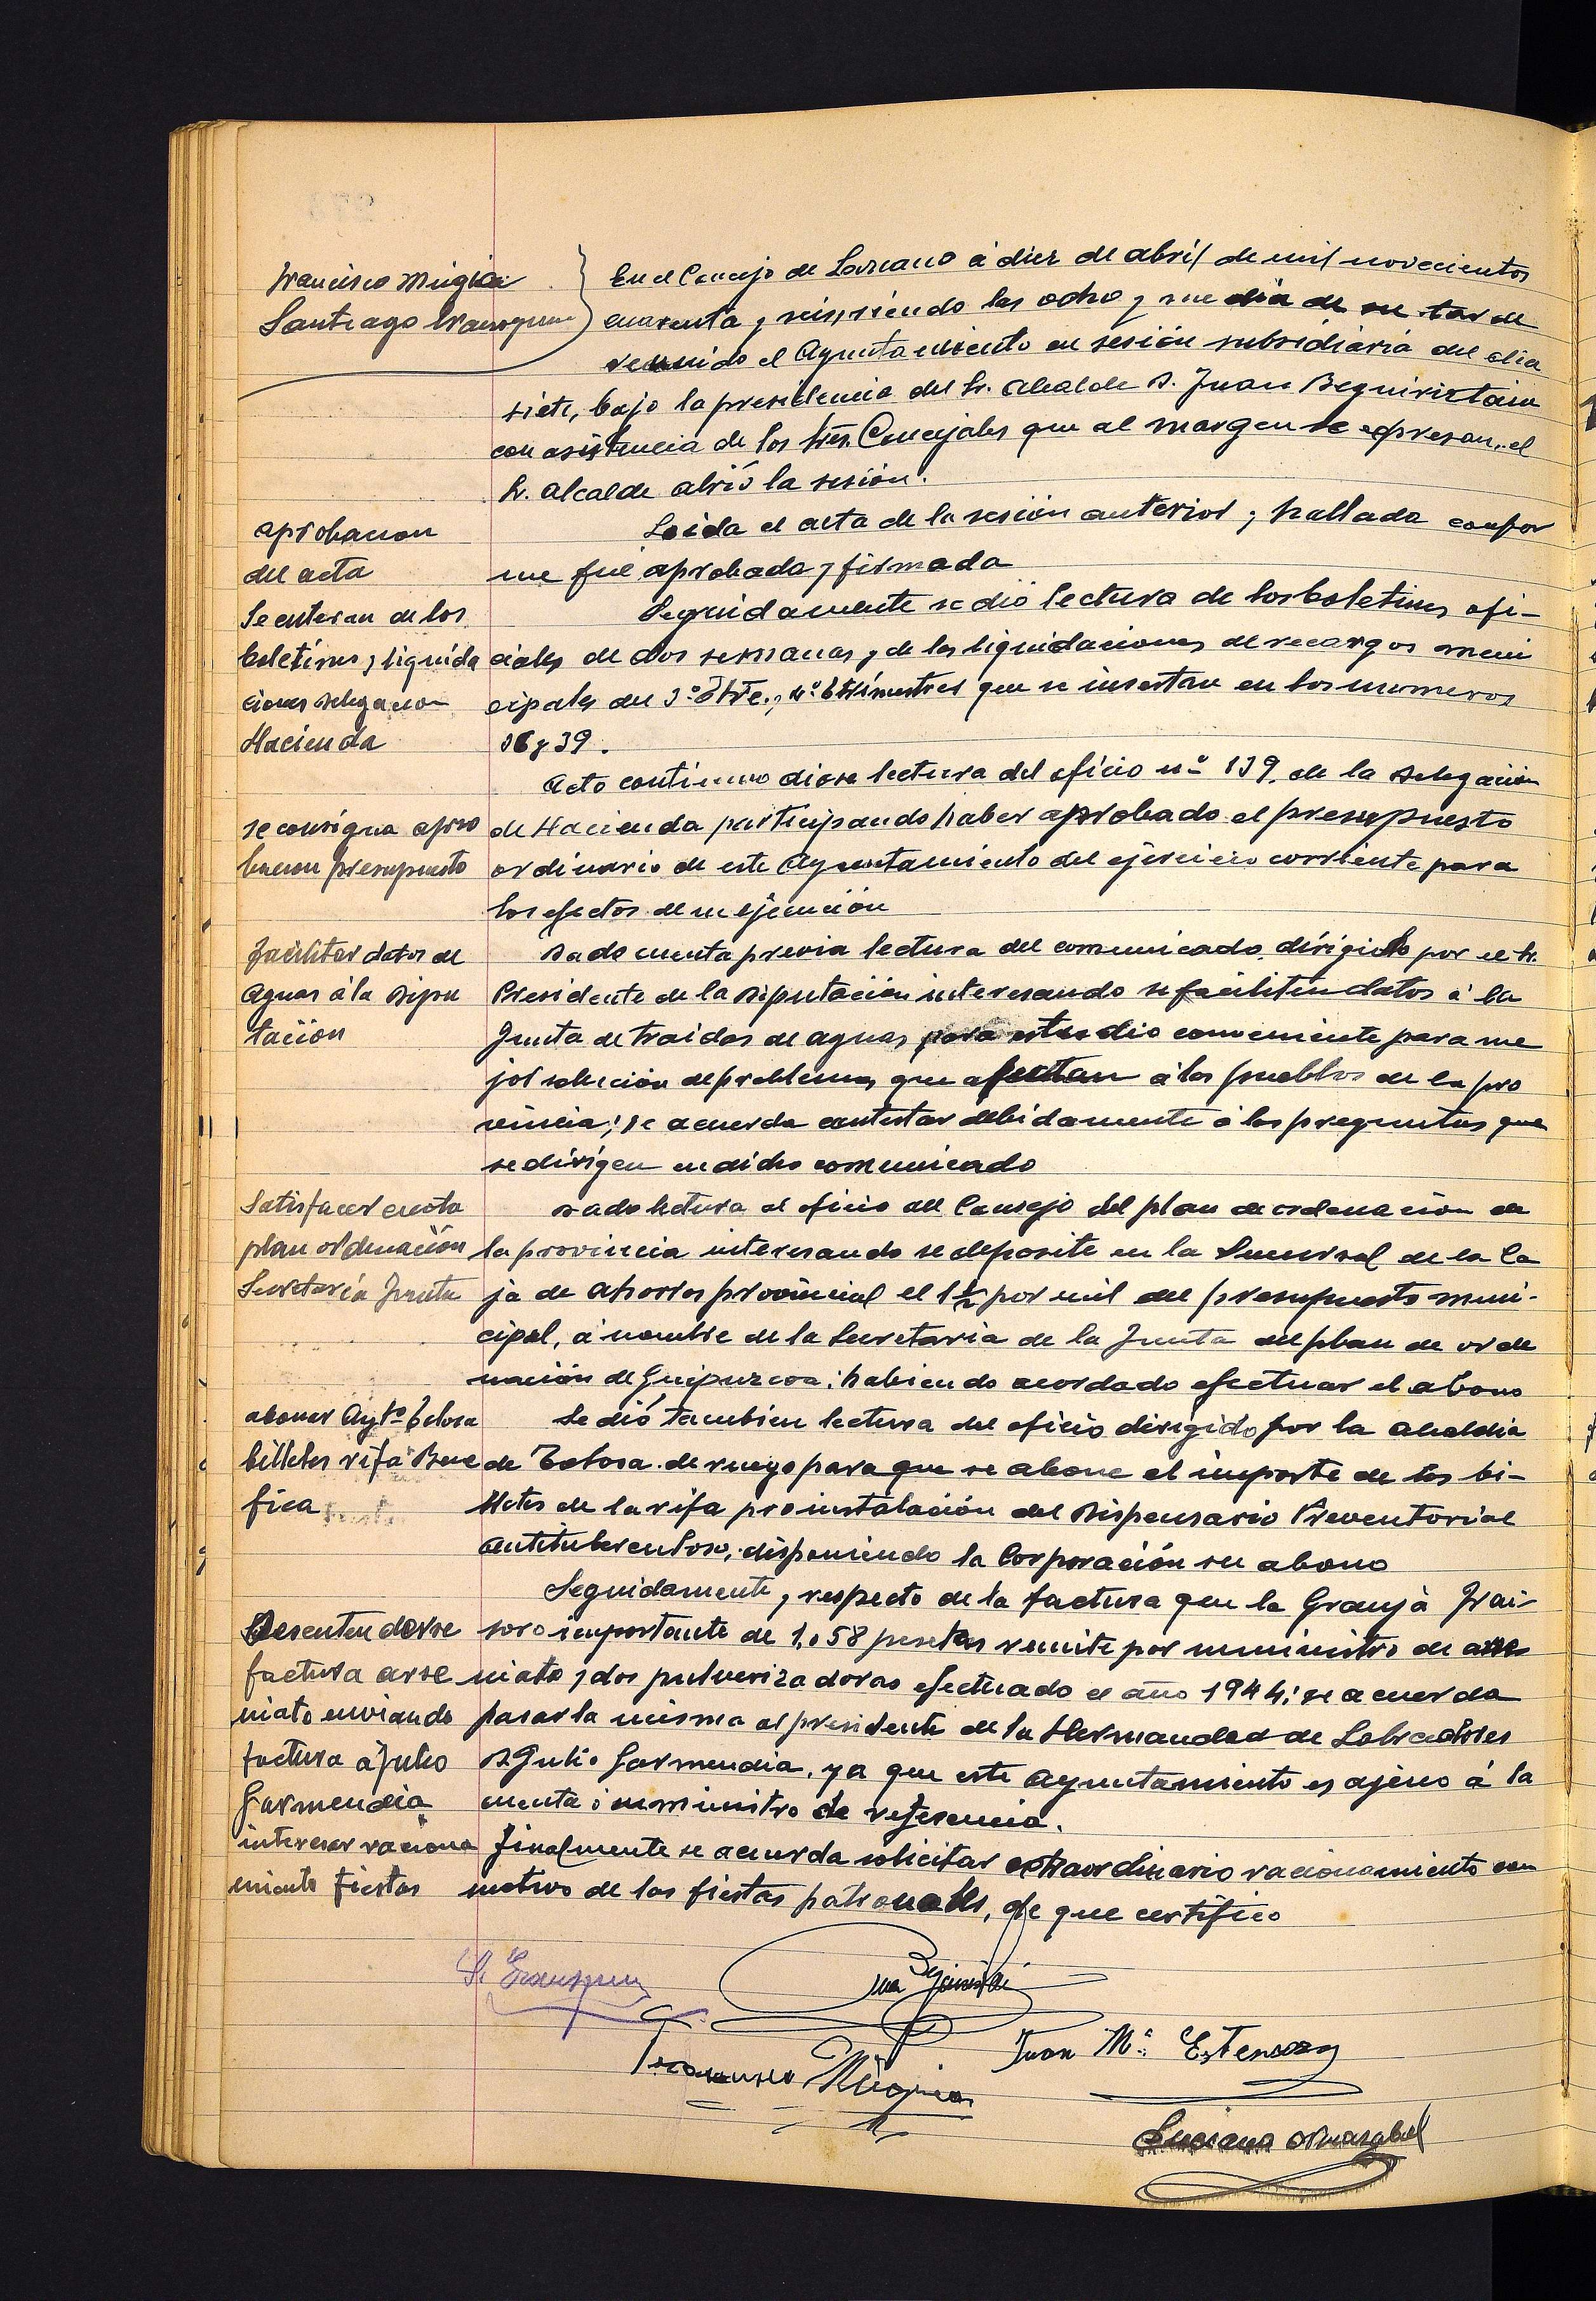 Francisco Mugica
Santiago Irausquin
En el Concejo de Lazcano á diez de abril de mil novecientos
cuarenta y seis, siendo las ocho y media de su tarde
reunido el Ayuntamiento en sesión subsidiaria del dia
siete, bajo la presidencia del Sr. Alcalde D. Juan Beguiristain
con asistencia de los Sres. Concejales que al margen se expresan, el
Sr. Alcalde abrió la sesión.
aprobacion
del acta
Leida el acta de la sesión anterior y hallada confor
me fué aprobada y firmada
Se enteran de los
boletines y liquida
ciones Delegacion
Hacienda
Seguidamente se dió lectura de los boletines ofi-
ciales de dos semanas y de las liquidaciones de recargos muni
cipales del 3º y 4º trimestres que se insertan en los numeros
y 39.
se consigna apro
bacion presupuesto
Acto continuo diose lectura del oficio nº 139 de la Delegación
de Hacienda participando haber aprobado el presupuesto
ordinario de este Ayuntamiento del ejercicio corriente para
los efectos de su ejecución
Facilitar datos de
aguas á la Dipu
tación
Dada cuenta previa lectura del comunicado dirigido por el Sr.
Presidente de la Diputación interesando se faciliten datos á la
Junta de traidas de aguas para estudio conveniente para me
jor solución de problemas que afectan á los pueblos de la pro
vincia; se acuerda contestar debidamente á las preguntas que
se dirigen en dicho comunicado
Satisfacer cuota
plan ordenación
Secretaría Junta
Dado lectura al oficio del Consejo del plan de ordenación de
la provincia interesando se deposite en la Sucursal de la Ca
ja de Ahorros provincial el 1½ por mil del presupuesto muni-
cipal, á nombre de la Secretaria de la Junta del plan de orde
nación de Guipuzcoa; habiendo acordado efectuar el abono
abonar Aytº Tolosa
billetes rifa Bene
fica
Se dió tambien lectura del oficio dirigido por la Alcaldia
de Tolosa de ruego para que se abone el importe de los bi-
lletes de la rifa pro instalación del Dispensario Preventorial
antituberculoso, disponiendo la Corporación su abono
Desentenderse
factura arse
niato enviando
factura á Julio
Garmendia
Seguidamente, respecto de la factura que la Granja Frai-
soro importante de 1.058 pesetas remite por suministro de arse
niato y dos pulverizadoras efectuado el año 1944; se acuerda
pasar la misma al presidente de la Hermandad de Labradores
D. Julio Garmendia, ya que este Ayuntamiento es ajeno á la
cuenta ó suministro de referencia.
interesar raciona
miento fiestas
Finalmente se acuerda solicitar extraordinario racionamiento con
motivo de las fiestas patronales, de que certifico
S. Irausquin
Juan Beguiristain
Francisco Mugica
Juan Mª Estensoro
Luciano Ormazabal